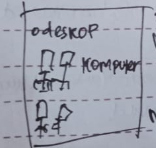 odeskop
Komputer